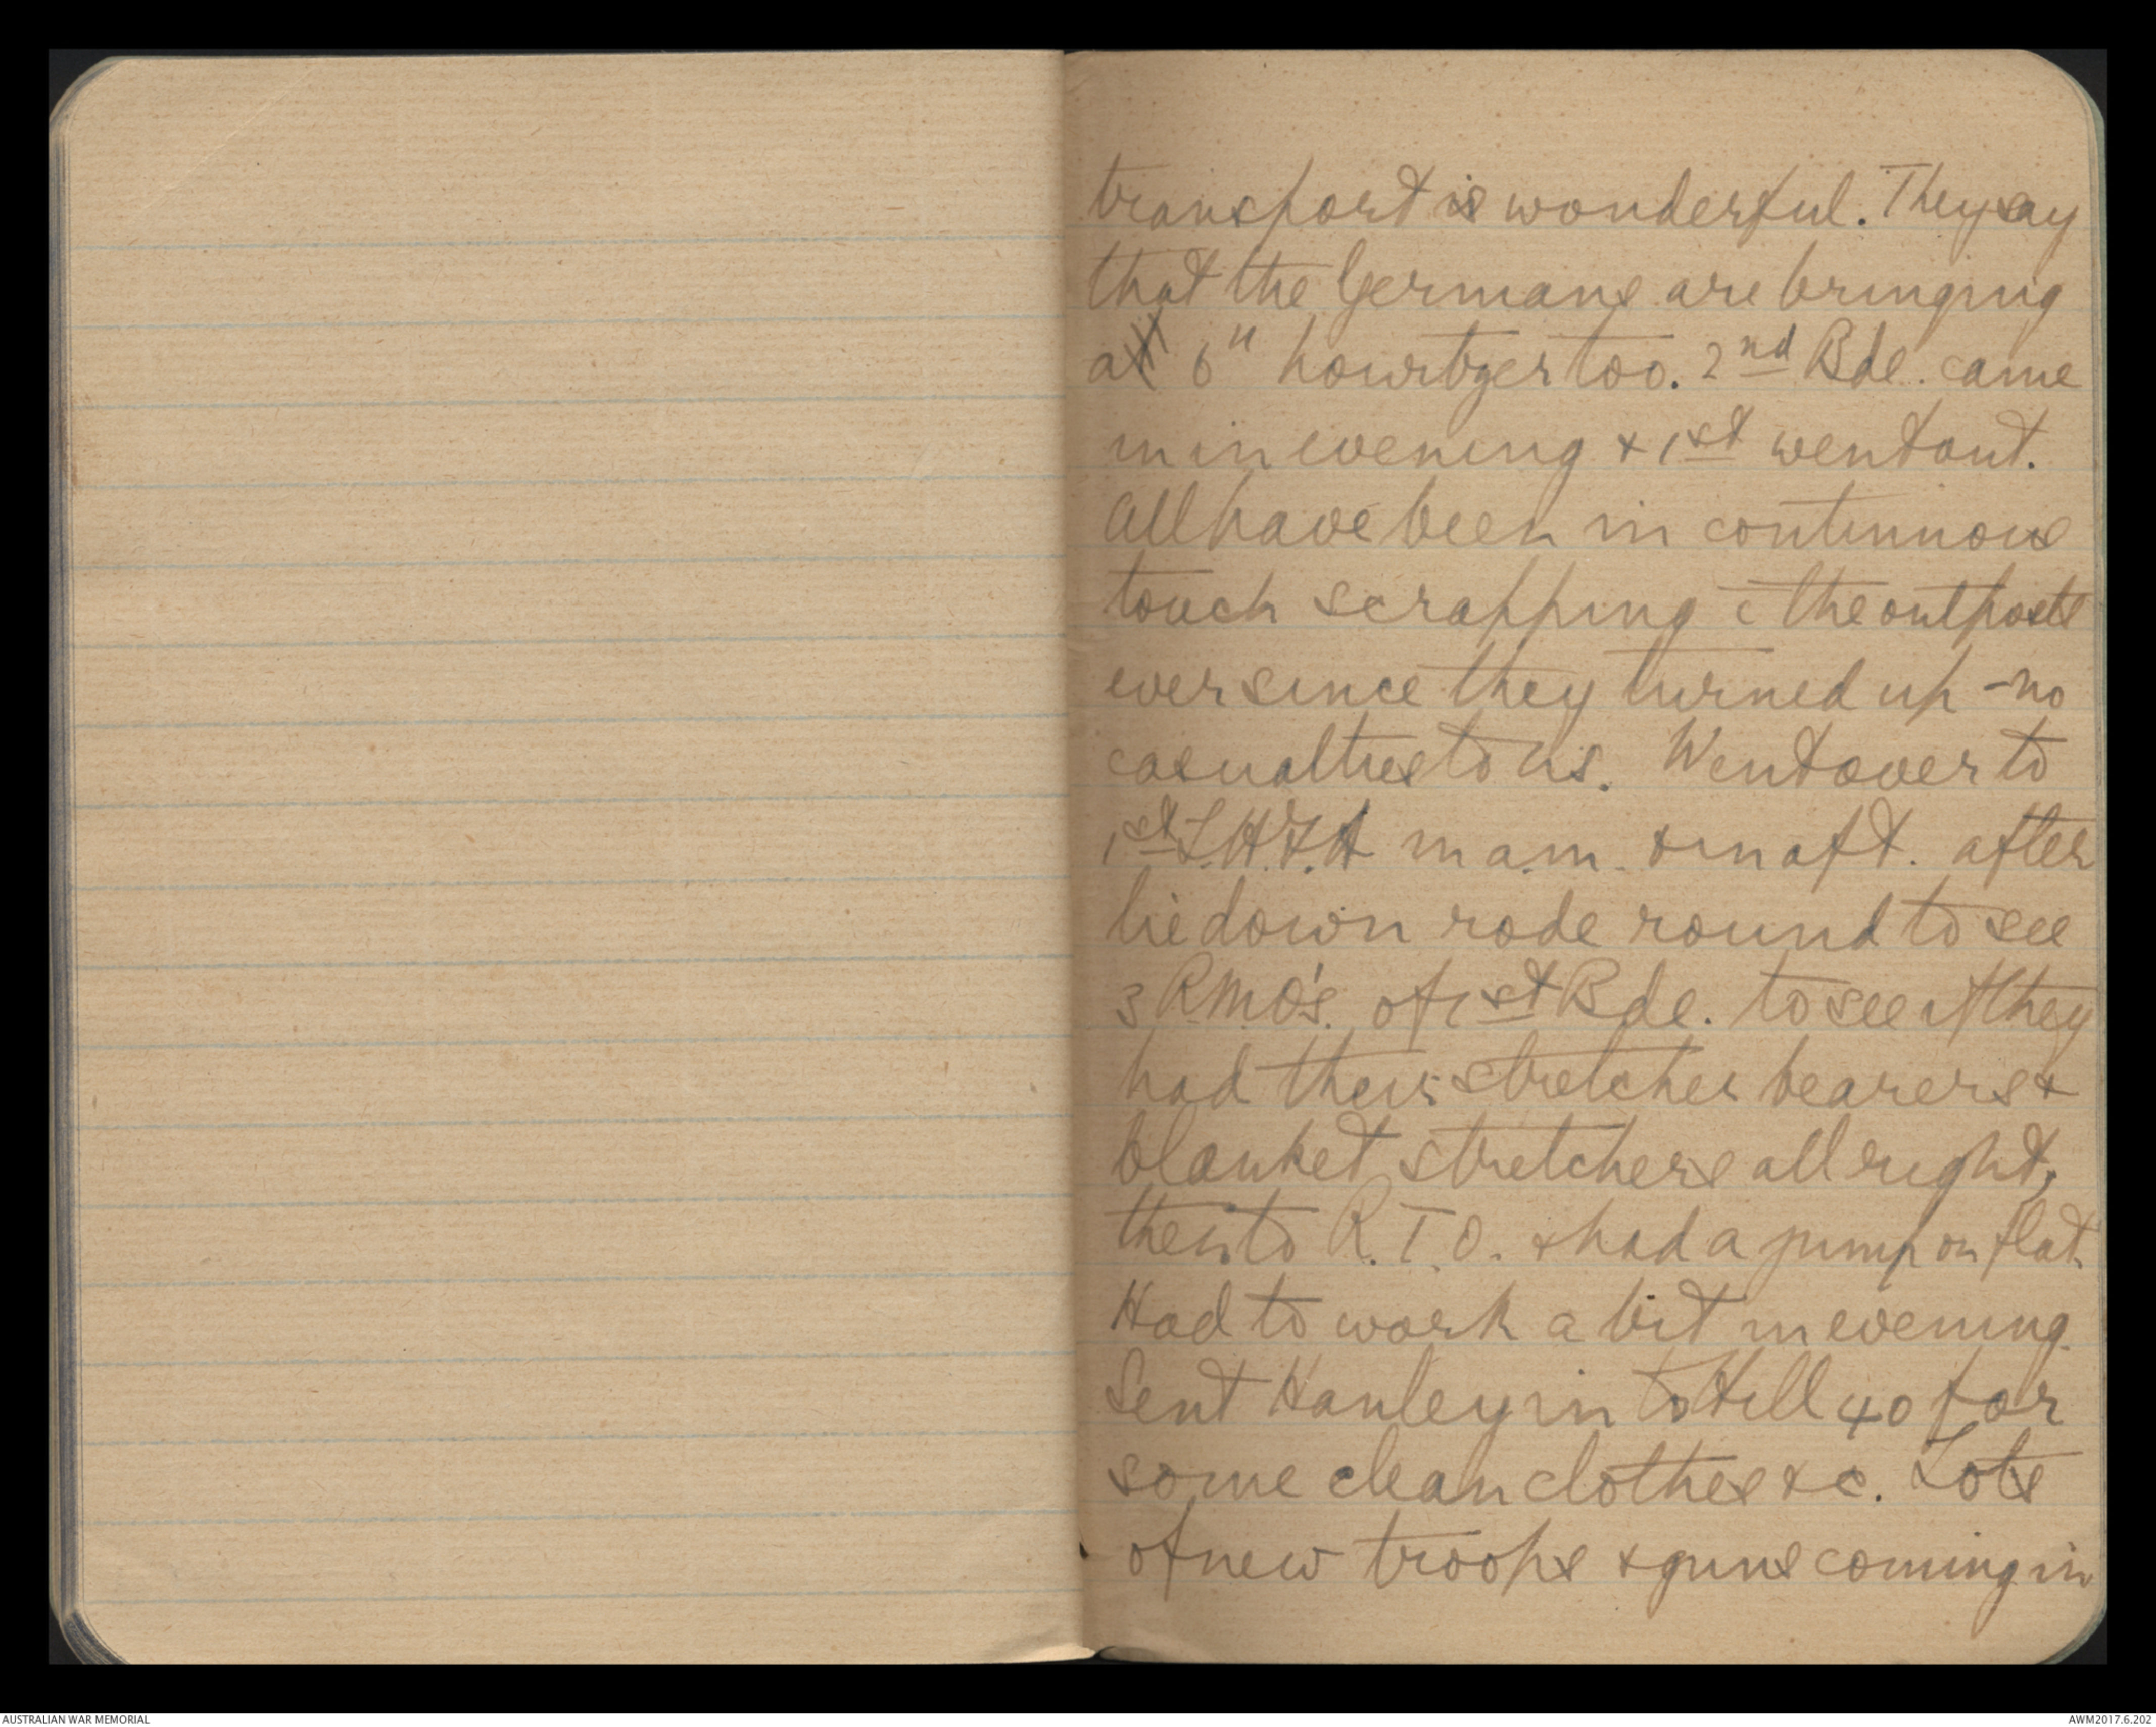 transport is wonderful. They say
that the Germans are bringing
a 6" howitzer too. 2nd Bde. came
in in evening & 1st went out.
All have been in continuous
touch scrapping c̄ the outposts
ever since they turned up - no
casualties to us. Went over to
1st L.H.F.A in a.m. & in aft. after
lie down rode round to see
3 R.M.O's. of 1st Bde. to see if they
had their stretcher bearers &
blanket stretchers all right,
then to R.T.O. & had a jump on flat.
Had to work a bit in evening.
Sent Hanley in to Hill 40 for
some clean clothes &c. Lots
of new troops & guns coming in
AUSTRALIAN WAR MEMORIAL
AWM2017.6.202